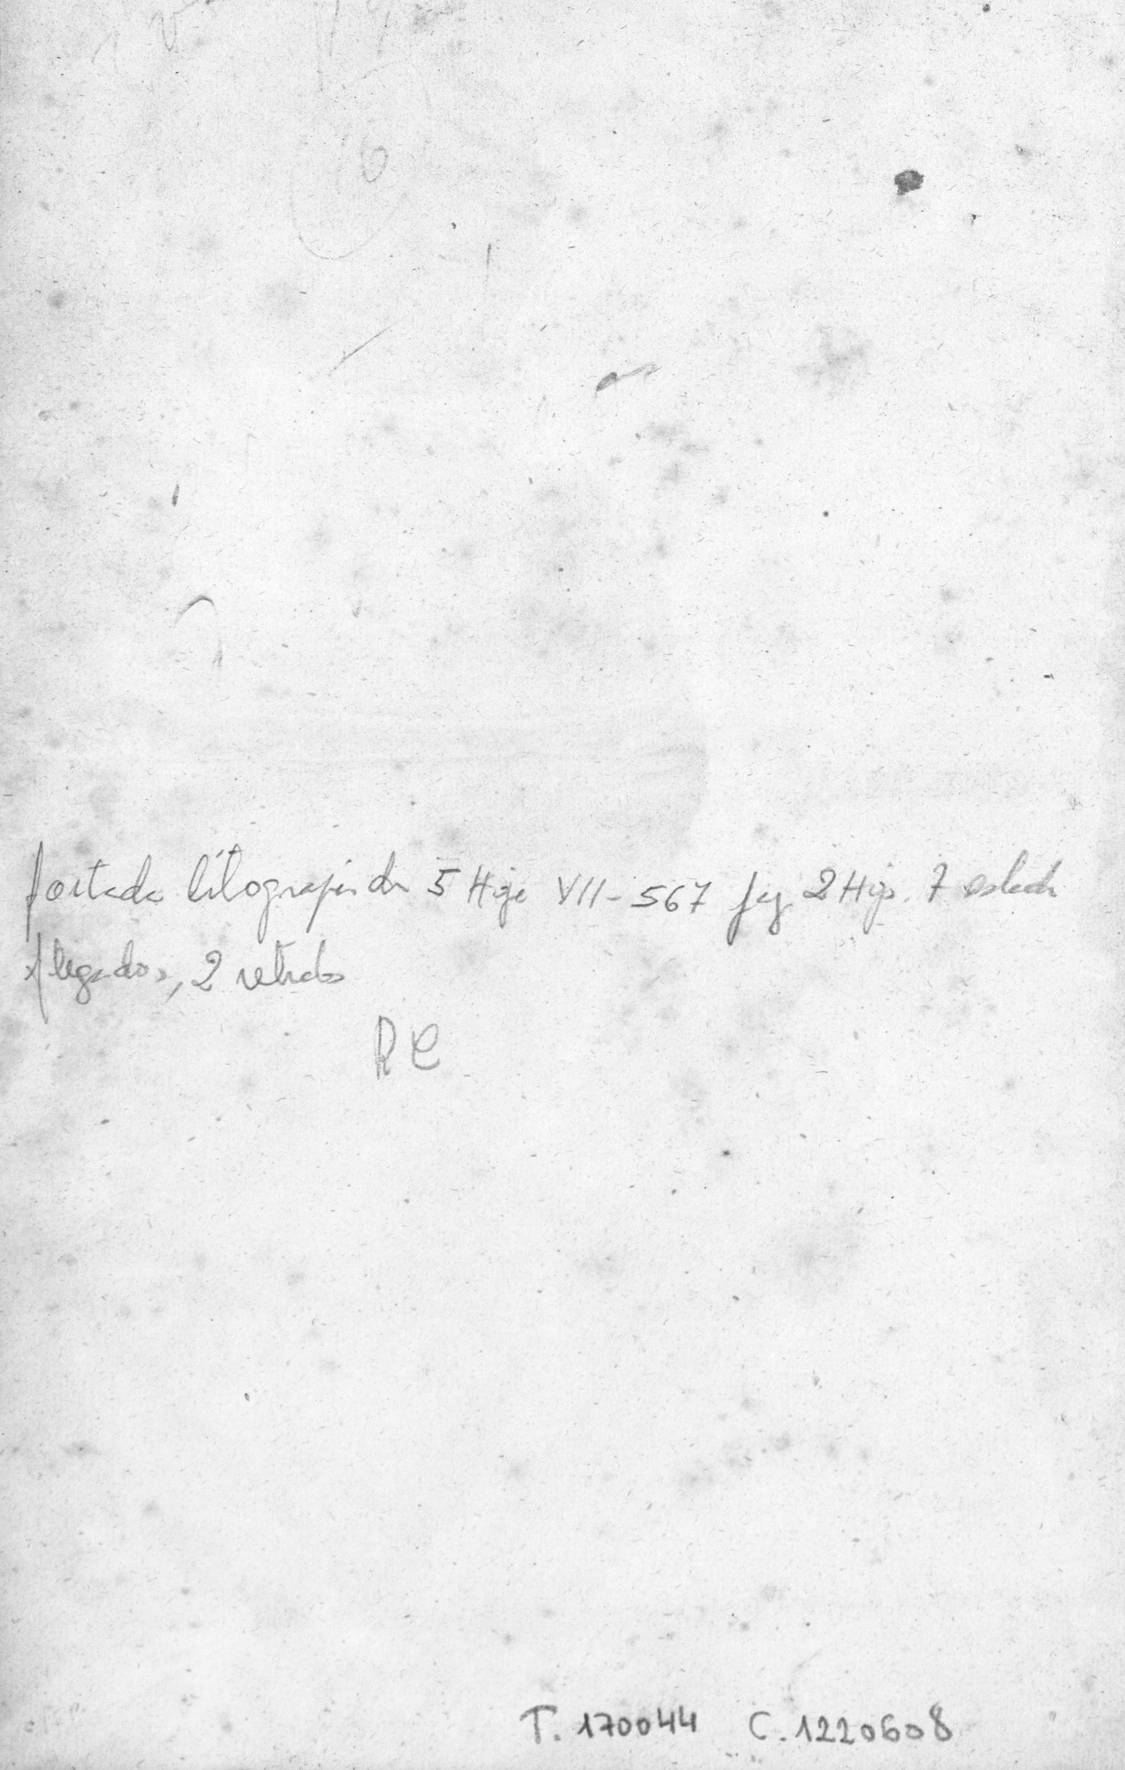 portada litografiada 5 Hoje VII-567 pag 2 Hojs. 7 estads
plegados, 2 retrados
RC
T. 170044 C. 1220608